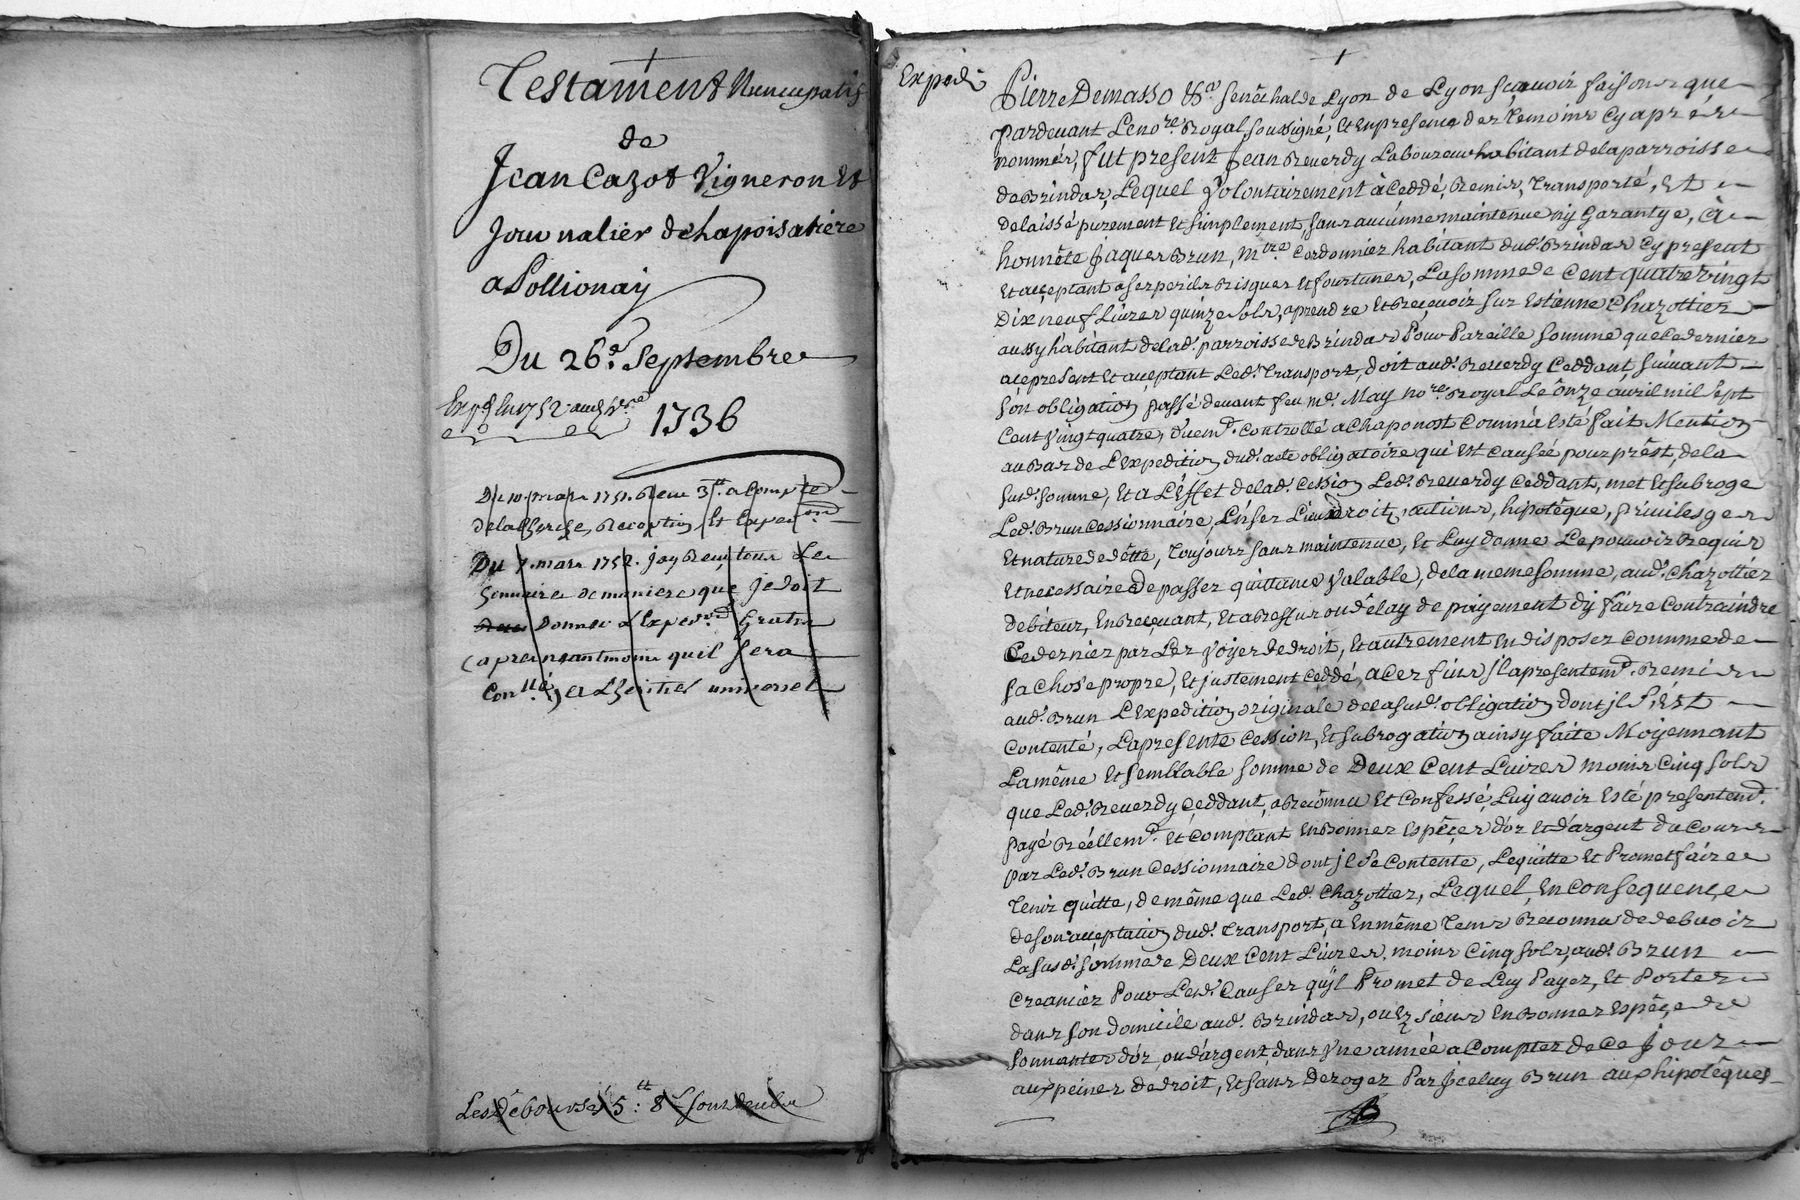 Testament Nuncupatif
de
Jean Cazot Vigneron Et
Journalier de Lapoisatiere
a Pollionay
Du 26.e Septembre
1736
Du 10. mars 1751. Receu 3tt a Compte
de la Cherche, Reception Et Expeon
Du 7. mars 1752. jay Receu tous Les
de maniere que je doit
Donner L'Exped.on Gratis
(apres neantmoins quil sera
Con.llé) a L'heritier universel
Les Débourses 5tt : 8s sont deubu
Exped.
Pierre Demasso &a. Senêchal de Lyon de Lyon sçavoir faisons que
pardevant Le nore. Royal soussigné, Et En presence des temoins Cy aprés
nommés, fut present Jean Reverdy Laboureur habitant de la parroisse
de Brindas, Lequel Volontairement à Ceddé, Remis, transporté, Et
delaissé purement Et simplement, sans aucunne maintenue ny Garantye, à
honnête Jaques Brun, Mtre. Cordonnier habitant dud. Brindas Cy present
Et acçeptant a ses perils Risques Et fourtunes, La somme de Cent quatre Vingt
Dix neuf Livres quinze sols, a prendre Et Reçevoir sur Estienne Chazottier
aussy habitant de lad. parroisse de Brindas Pour Pareille somme que Ce dernier
açe present Et acçeptant Led. transport, doit aud. Reverdy Ceddant, suivant
son obligation passé devant feu me. May nore. Royal Le onze avril mil sept
Cent Vingt quatre, duem.t Controllé a Chaponost Comm'a Esté fait Mention
au Bas de L'Expedition dud. acte obligatoire qui Est Causée pour prêst, de la
susd. somme, Et a L'effet de lad. Cession Led. Reverdy Ceddant, met Et subroge
Led. Brun Cessionnaire, En ses Lieu droit, actions, hipotêque, privileges
Et nature de dêtte, toujours sans maintenue, Et Luy donne Le pouvoir Requis
Et necessaire De passer quittance Valable, de la meme somme, aud. Chazottier
débiteur, En Reçevant, Et a Reffus ou délay de payement d'y faire Contraindre
Ce dernier par Les Voyes de droit, Et autrement En disposer Comme de
sa Chose propre, Et justement Ceddé, a Ces fins Il a presentemt. Remis
aud. Brun L'Expedition originale de la susd. obligation dont jl s'Est
Contenté, La presente Cession, Et subrogation ainsy faite Moyennant
La même Et semblable somme de Deux Cent Livres moins Cinq sols
que Led. Reverdy Çeddant, a Reconnu Et Confessé, Luy avoir Esté presentemt.
payé Reéllemt. Et Comptant En Bonnes Espêçes d'or Et d'argent du Cours
par Led. Brun Cessionnaire dont jl se Contente, Le quitte Et Promet faire
tenir quitte, de même que Led. Chazottier, Lequel, En Consequençe
de son acçeptation dud. transport, a En même tems Reconnu de debvoir
La susd. somme de Deux Cent Livres, moins Cinq sols, aud. Brun
Creancier Pour Lesd. Causes quil Promet de Luy Payer, Et Porter
dans son domicile aud. Brindas, ou Es siens En Bonnes Espêçe de
sonnantes d'or, ou d'argent, dans Une année a Compter de Ce Jour
aux peines de droit, Et sans Deroger Par Jceluy Brun aux hipotêques